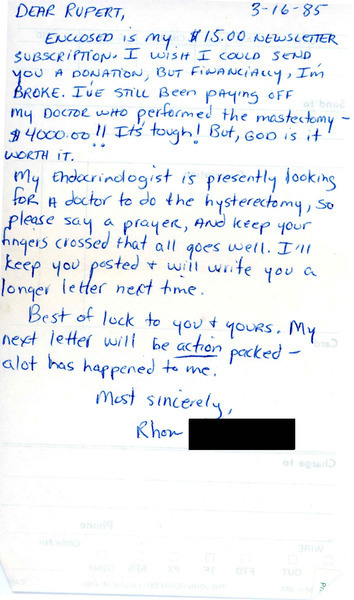 DEAR RUPERT, 3-16-85
ENCLOSED is my $15.00 NEWSLETTER
SUBSCRIPTION. I WISH I COULD SEND
YOU A DONATION, BUT FINANCIALLY, I'M
BROKE. I'VE STILL BEEN PAYING OFF
MY DOCTOR WHO performed the mastectomy –
$4000.00!! It's tough! But, GOD is it
WORTH IT.
My Endocrinologist is presently looking
FOR A doctor to do the hysterectomy, so
please say a prayer, AND keep your
fingers crossed that all goes well. I'll
keep you posted + will write you a
longer letter next time.
Best of luck to you + yours. My
next letter will be action packed –
alot has happened to me.
Most sincerely,
Rhon
Charge to
Phone